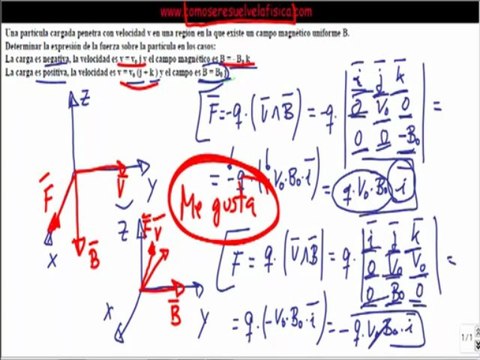 www.comoseresuelvelafisica.com
Una partícula cargada penetra con velocidad v en una region en la que existe un campo magnético uniforme B.
Determinar la expresión de la fuerza sobre la partícula en los casos:
La carga es negativa, la velocidad es v = v₀ j y el campo magnético es B = - B₀ k
La carga es positiva, la velocidad es v = v₀ (j + k) y el campo es B = B₀ j
F̄ = -q·(V̄∧B̄) = -q· | ī j̄ k̄ | =
0 V₀ 0
0 0 -B₀
= -q·(-V₀·B₀·ī) = q·V₀·B₀·ī
Z
V̄
Y
F̄
X
B̄
Me gusta
F = q·(V̄∧B̄) = q· | ī j̄ k̄ | =
0 V₀ V₀
0 B₀ 0
= q·(-V₀·B₀·ī) = -q·V₀·B₀·ī
Z
F̄
V̄
X
B̄
Y
1/1